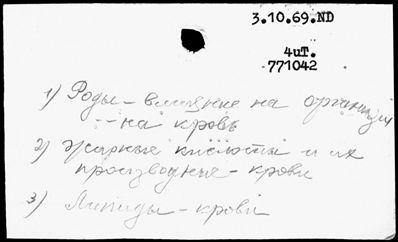 3.10.69.ND
4uT.
771042
1) Роды – влияние на организм
-- на кровь
2) Жирные кислоты и их
производные – крови
3) Липиды – крови